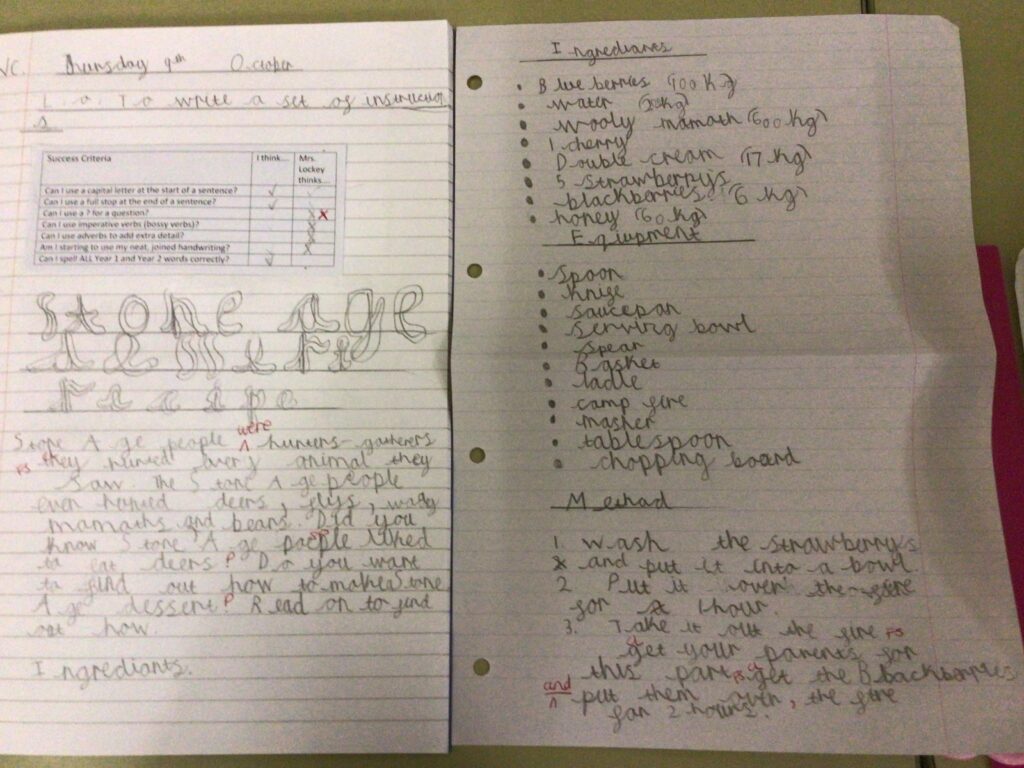 Thursday 9th October
L.o. To write a set of instruction
s
Success Criteria
I think....
Mrs. Lockey thinks....
Can I use a capital letter at the start of a sentence? ✓
Can I use a full stop at the end of a sentence? ✓
Can I use a ? for a question? x x
Can I use imperative verbs (bossy verbs)? x
Can I use adverbs to add extra detail? x
Am I starting to use my neat, joined handwriting? x
Can I spell ALL Year 1 and Year 2 words correctly? ✓
Stone age
Stone Age people were
FS they hunted every animal they
saw. The Stone Age people
even hunted deers,
mamaths and bears. Did you
know Stone Age people liked
to eat deers? Do you want
to find out how to make Stone
Age dessert? Read on to find
out how.
Ingrediants.
Ingrediants
• Blueberries (100Kg)
• water
• wooly mamath (600Kg)
• 1 cherry
• Double cream (17 Kg)
• 5 strawberrys
• blackberries (6 Kg)
• honey (60 Kg)
Equipment
• Spoon
• knife
• saucepan
• serving bowl
• spear
• Basket
• ladle
• camp fire
• masher
• tablespoon
• chopping board
Methad
1. wash the strawberrys
and put it into a bowl.
2. Put it over the fire
for 1 hour.
3. Take it out the fire FS
get your parents for
this part FS get the Blackberries
and put them over, the fire
for 2 hours.